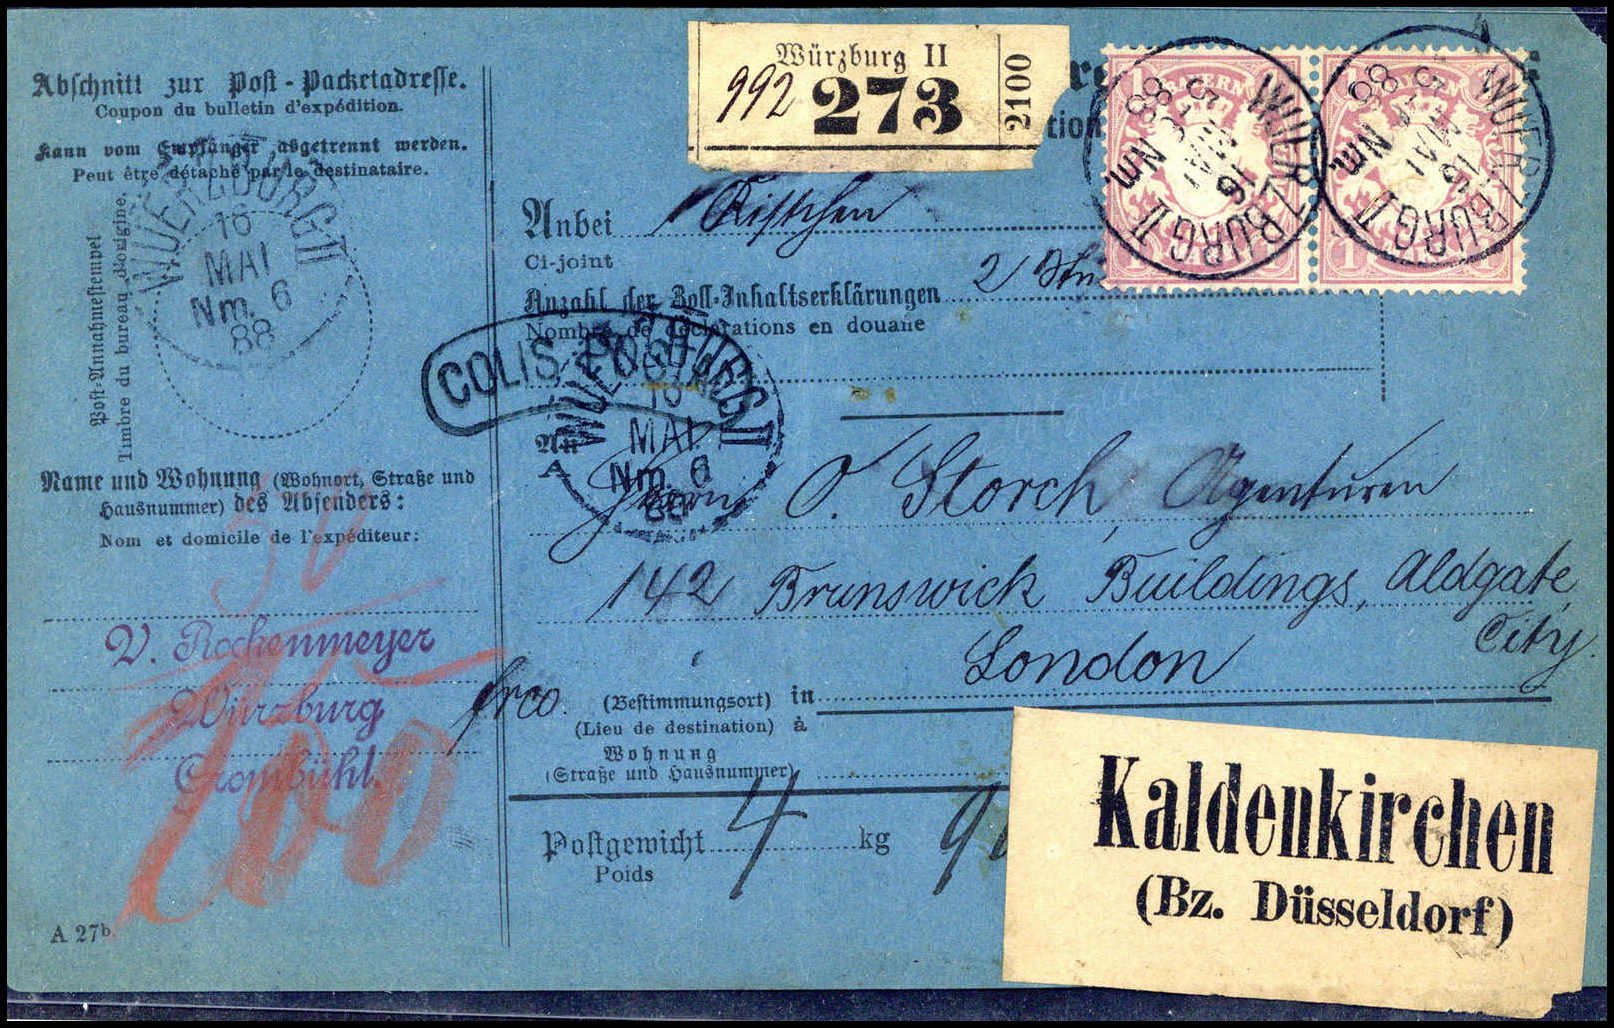 Abschnitt zur Post-Packetadresse.
Coupon du bulletin d'expédition.
Kann vom Empfänger abgetrennt werden.
Peut être détaché par le destinataire.
Post-Annahmestempel
Timbre du bureau d'origine.
WUERZBURG II
16
MAI
Nm. 6
88
Name und Wohnung (Wohnort, Straße und
Hausnummer) des Absenders:
Nom et domicile de l'expéditeur:
V. Rockenmeyer
Würzburg
Grombühl.
100
A 27b.
Würzburg II
992 273
2100
tion
BAYERN
1 MARK 1
WUERZBURG II
MAI
Nm
88
BAYERN
WUERZBURG II
MAI
Nm
88
Anbei 1 Kistchen
Ci-joint
Anzahl der Zoll-Inhaltserklärungen 2
Nombre de déclarations en douane
COLIS POSTAL
WUERZBURG II
16
MAI
Nm. 6
88
An
A
Herrn O. Storch, Agenturen
142 Brunswick Buildings, Aldgate,
City.
London
frco. (Bestimmungsort) in
(Lieu de destination) à
Wohnung
(Straße und Hausnummer)
Postgewicht 4 kg
Poids
Kaldenkirchen
(Bz. Düsseldorf)